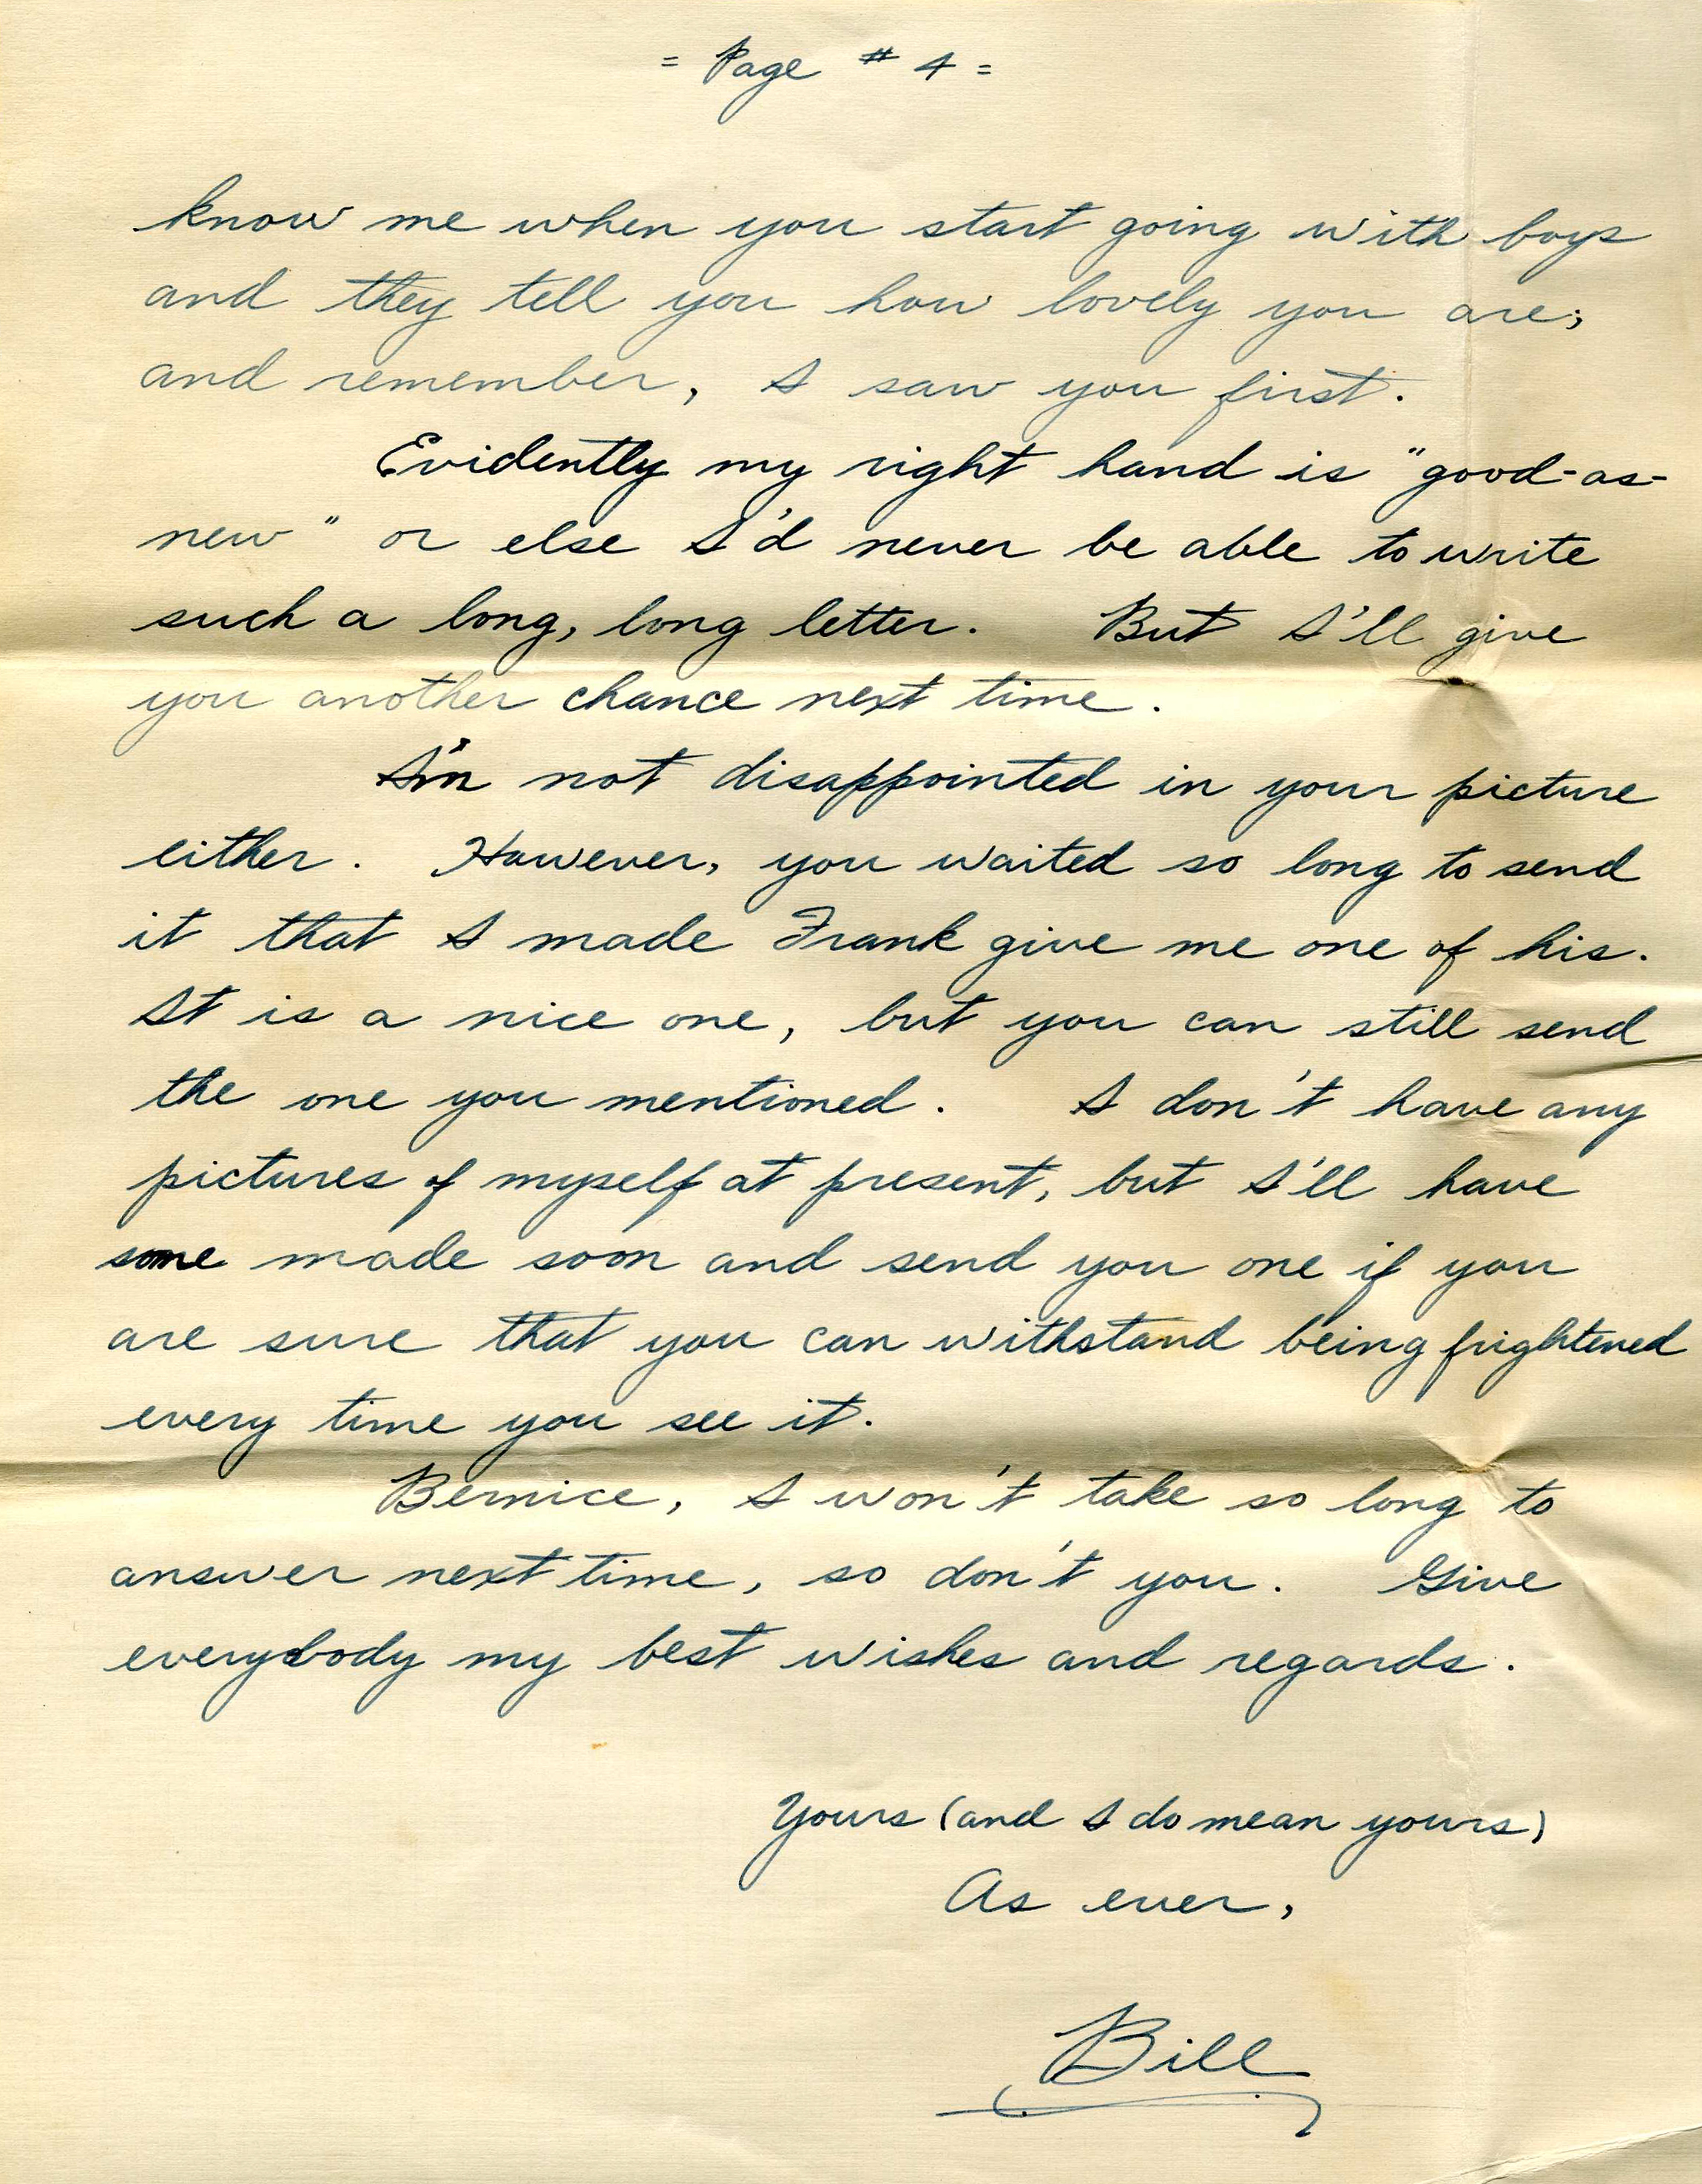 = Page # 4 =
know me when you start going with boys
and they tell you how lovely you are;
and remember, I saw you first.
Evidently my right hand is "good-as-
new" or else I'd never be able to write
such a long, long letter. But I'll give
you another chance next time.
I'm not disappointed in your picture
either. However, you waited so long to send
it that I made Frank give me one of his.
It is a nice one, but you can still send
the one you mentioned. I don't have any
pictures of myself at present, but I'll have
some made soon and send you one if you
are sure that you can withstand being frightened
every time you see it.
Bernice, I won't take so long to
answer next time, so don't you. Give
everybody my best wishes and regards.
Yours (and I do mean yours)
As ever,
Bill